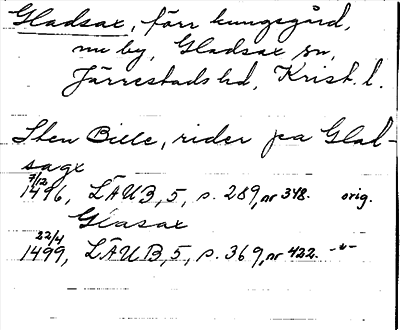 Gladsax, förr kungsgård,
nu by, Gladsax sn,
Järrestads hd, Krist. l.
Sten Bille, rider pa Glat-
sagx
7/12
1496, LÄUB, 5, s. 289, nr 348. orig.
Glasax
22/4
1499, LÄUB, 5, s. 369, nr 422. -"-